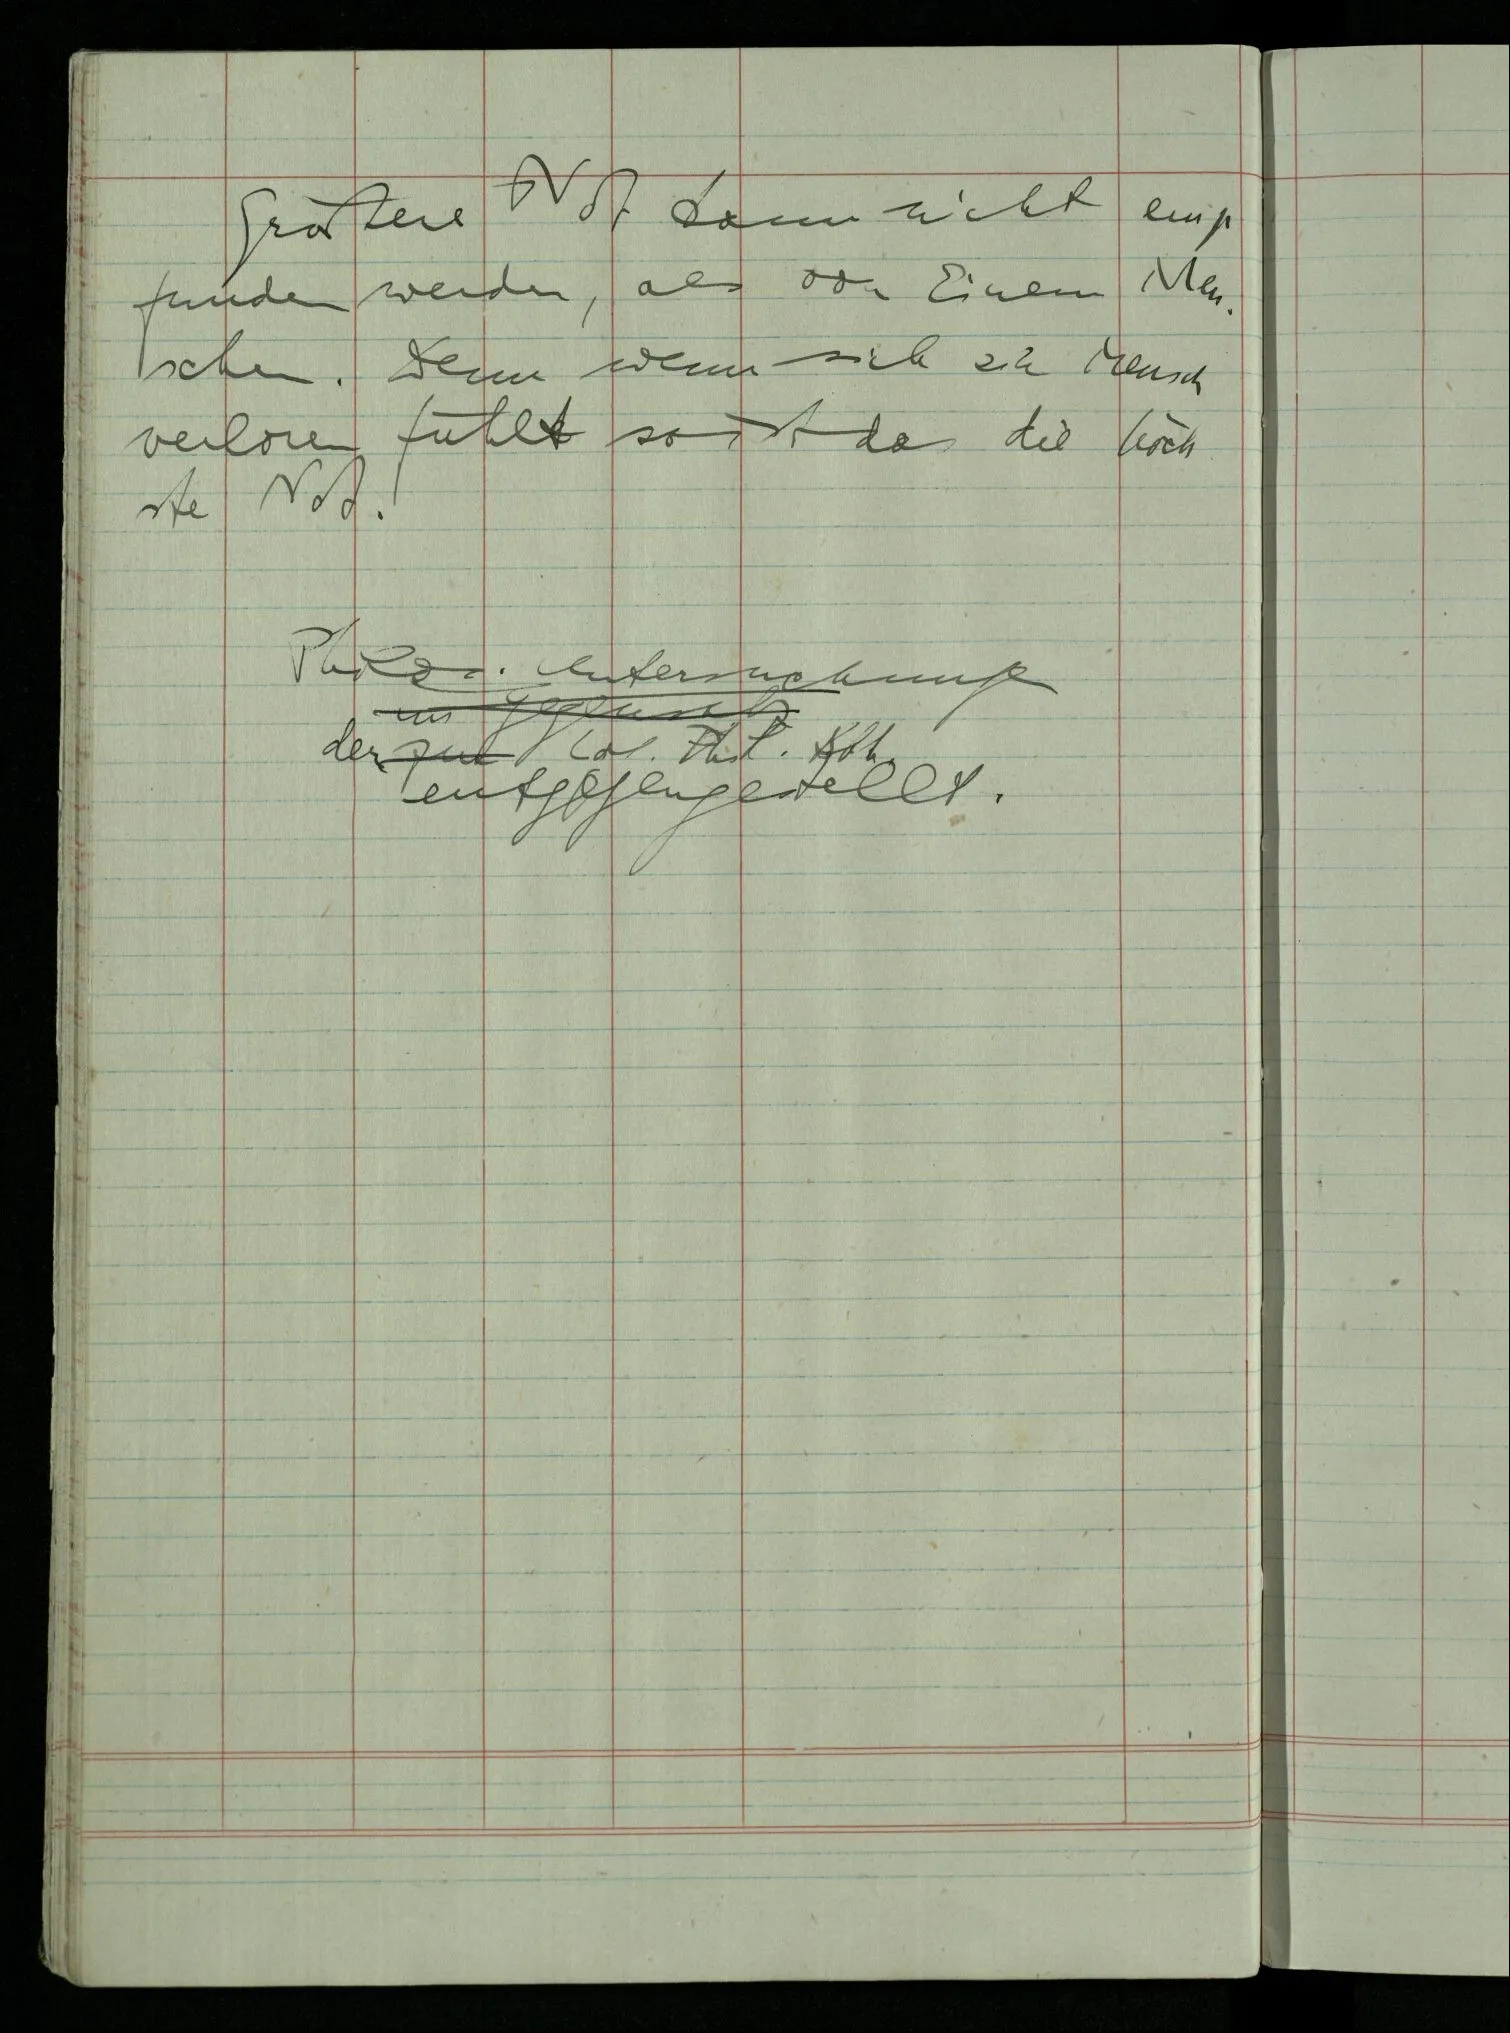 Größere Not kann nicht emp
funden werden, als von Einem Men-
schen. Denn wenn sich ein Mensch
verloren fühlt so ist das die höch
ste Not.
Philos. Untersuchungen
im Gegensatz
der zur Log. Phil. Abh.
entgegengestellt.